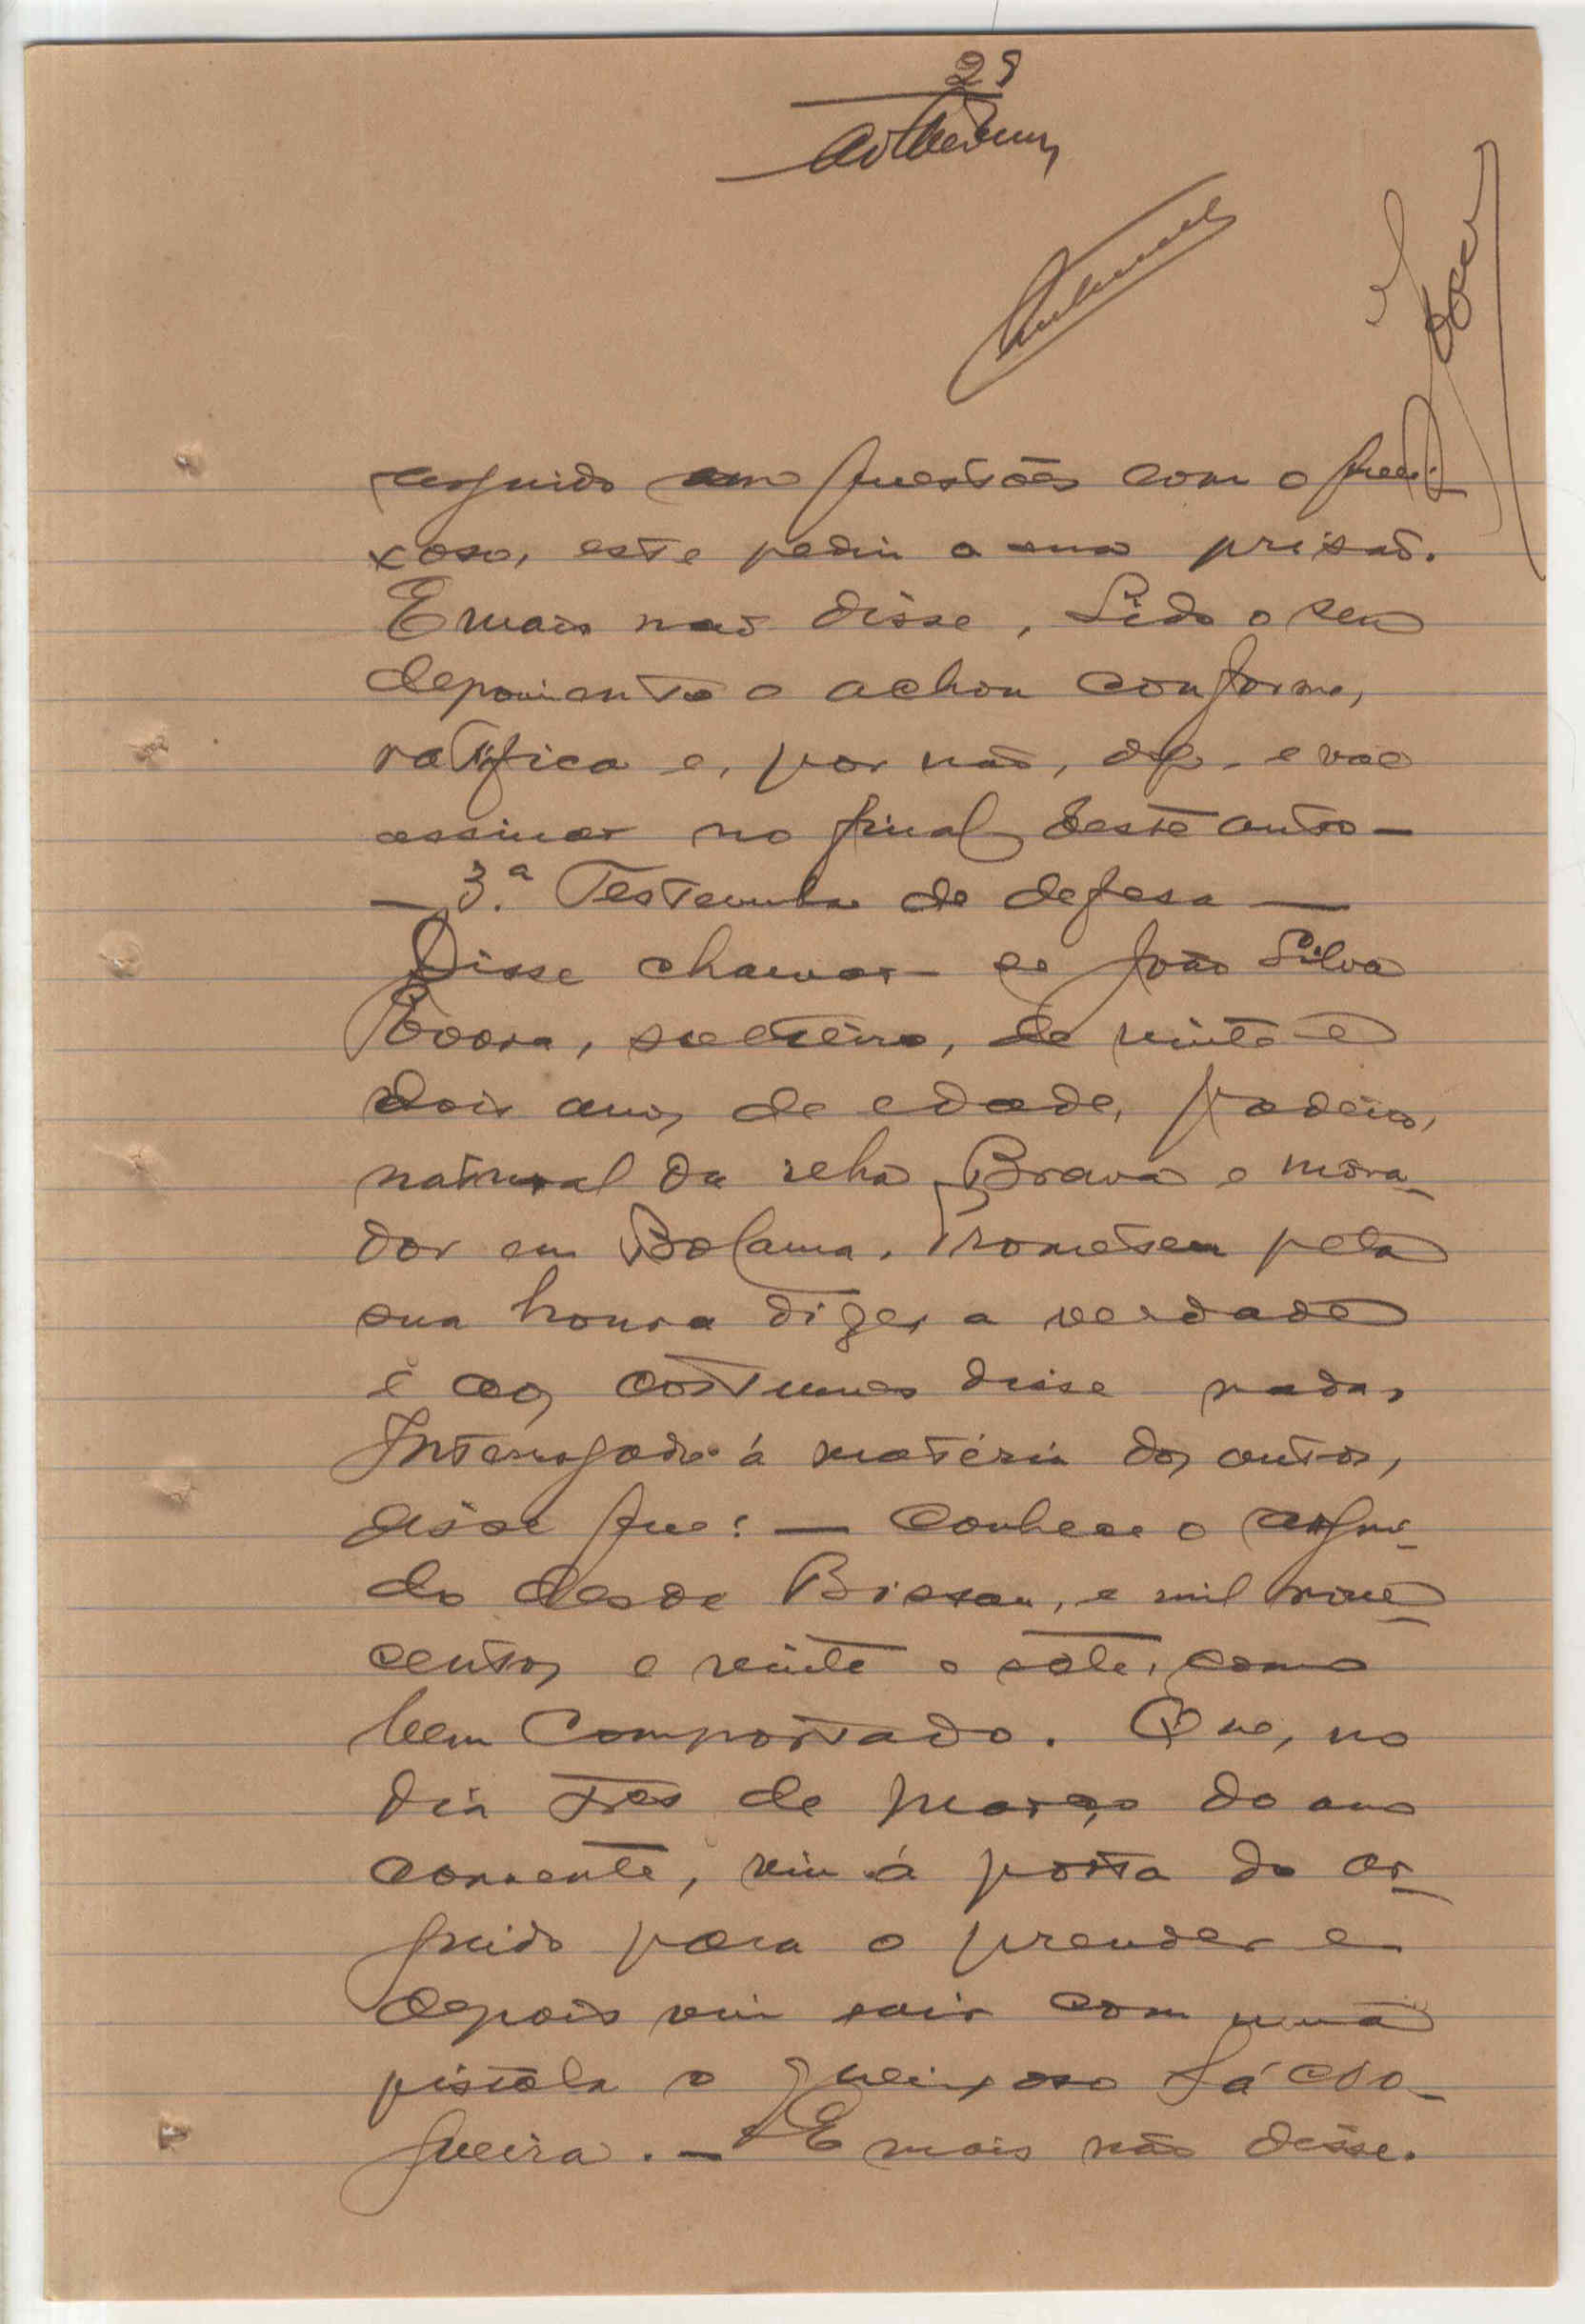 29
arguido em questões com o quei-
xoso, este pediu a sua prisão.
E mais não disse, Lido o seu
depoimento o achou conforme,
ratifica e, por não, e vae
assinar no final deste auto —
— 3.ª Testemunha de defesa —
Disse chamar-se João Silva
Evora, solteiro, de vinte e
dois anos de edade, padeiro,
natural da ilha Brava e mora-
dor em Bolama. Prometeu pela
sua honra dizer a verdade
e aos costumes disse nada.
Interrogado á matéria dos autos,
disse que: — Conhece o argui-
do desde Bissau, e mil nove-
centos e vinte e sete, como
bem comportado. Que, no
dia tres de março do ano
corrente, viu á porta do ar-
guido para o prender e
depois viu sair com uma
pistola o queixoso Sá
gueira. — E mais não disse.